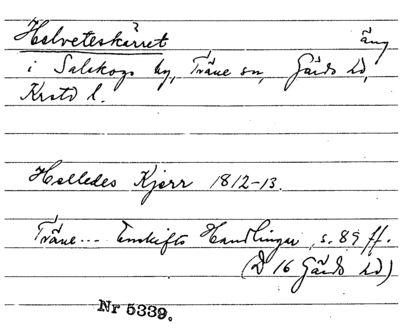 Helveteskärret äng
i Salskogs by, Träne sn, Gärds hd,
Krstd l.
Helledes Kjerr 1812-13.
Träne... Enskifts Handlingar, s. 89 ff.
(D 16 Gärds hd)
Nr 5339.